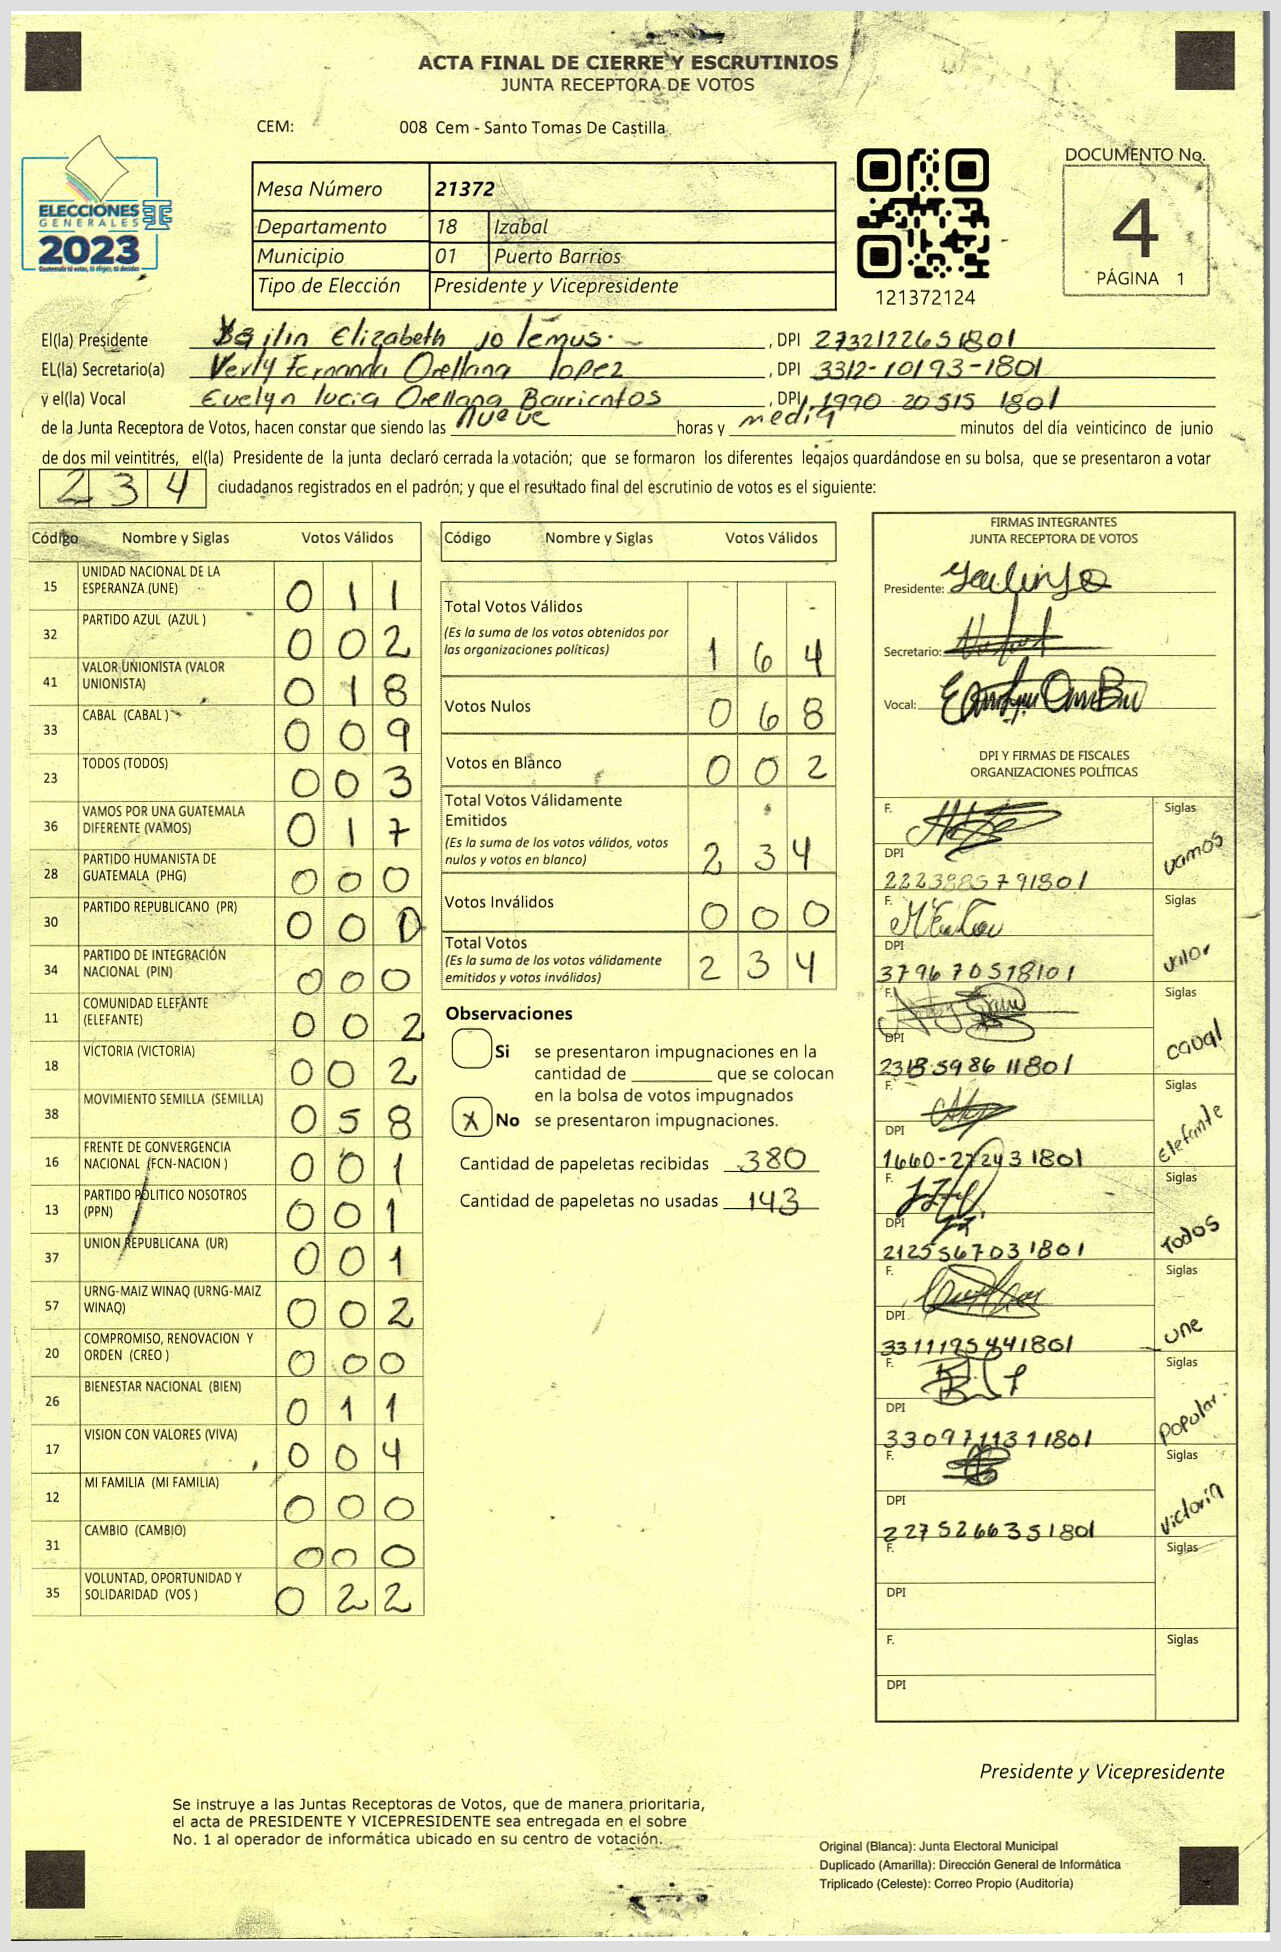 ACTA FINAL DE CIERRE Y ESCRUTINIOS
JUNTA RECEPTORA DE VOTOS
CEM: 008 Cem - Santo Tomas De Castilla
DOCUMENTO No.
4
PÁGINA 1
ELECCIONES
GENERALES
2023
Mesa Número 21372
Departamento 18 Izabal
Municipio 01 Puerto Barrios
Tipo de Elección Presidente y Vicepresidente
121372124
El(la) Presidente Elizabeth jo lemus , DPI 2732122651801
EL(la) Secretario(a) Verly Fernanda Orellana lopez , DPI 3312-10193-1801
y el(la) Vocal Evelyn lucia Orellana Barrientos , DPI 1990 20515 1801
de la Junta Receptora de Votos, hacen constar que siendo las nueve horas y media minutos del día veinticinco de junio
de dos mil veintitrés, el(la) Presidente de la junta declaró cerrada la votación; que se formaron los diferentes legajos guardándose en su bolsa, que se presentaron a votar
234 ciudadanos registrados en el padrón; y que el resultado final del escrutinio de votos es el siguiente:
Código Nombre y Siglas Votos Válidos
15 UNIDAD NACIONAL DE LA ESPERANZA (UNE) 0 1 1
32 PARTIDO AZUL (AZUL ) 0 0 2
41 VALOR UNIONISTA (VALOR UNIONISTA) 0 1 8
33 CABAL (CABAL ) 0 0 9
23 TODOS (TODOS) 0 0 3
36 VAMOS POR UNA GUATEMALA DIFERENTE (VAMOS) 0 1 7
28 PARTIDO HUMANISTA DE GUATEMALA (PHG) 0 0 0
30 PARTIDO REPUBLICANO (PR) 0 0 0
34 PARTIDO DE INTEGRACIÓN NACIONAL (PIN) 0 0 0
11 COMUNIDAD ELEFANTE (ELEFANTE) 0 0 2
18 VICTORIA (VICTORIA) 0 0 2
38 MOVIMIENTO SEMILLA (SEMILLA) 0 5 8
16 FRENTE DE CONVERGENCIA NACIONAL (FCN-NACION ) 0 0 1
13 PARTIDO POLITICO NOSOTROS (PPN) 0 0 1
37 UNION REPUBLICANA (UR) 0 0 1
57 URNG-MAIZ WINAQ (URNG-MAIZ WINAQ) 0 0 2
20 COMPROMISO, RENOVACION Y ORDEN (CREO ) 0 0 0
26 BIENESTAR NACIONAL (BIEN) 0 1 1
17 VISION CON VALORES (VIVA) 0 0 4
12 MI FAMILIA (MI FAMILIA) 0 0 0
31 CAMBIO (CAMBIO) 0 0 0
35 VOLUNTAD, OPORTUNIDAD Y SOLIDARIDAD (VOS ) 0 2 2
Código Nombre y Siglas Votos Válidos
Total Votos Válidos 1 6 4
(Es la suma de los votos obtenidos por
las organizaciones políticas)
Votos Nulos 0 6 8
Votos en Blanco 0 0 2
Total Votos Válidamente
Emitidos 2 3 4
(Es la suma de los votos válidos, votos
nulos y votos en blanco)
Votos Inválidos 0 0 0
Total Votos 2 3 4
(Es la suma de los votos válidamente
emitidos y votos inválidos)
Observaciones
Si se presentaron impugnaciones en la
cantidad de ________ que se colocan
en la bolsa de votos impugnados
X No se presentaron impugnaciones.
Cantidad de papeletas recibidas 380
Cantidad de papeletas no usadas 143
FIRMAS INTEGRANTES
JUNTA RECEPTORA DE VOTOS
Presidente:
Secretario:
Vocal:
DPI Y FIRMAS DE FISCALES
ORGANIZACIONES POLÍTICAS
F. Siglas vamos
DPI
2223885791801
F. Siglas valor
DPI
379670518101
F. Siglas caval
DPI
2318598611801
F. Siglas Elefante
DPI
F. Siglas Todos
DPI
2125567031801
F. Siglas une
DPI
3311195841801
F. Siglas popular.
DPI
3309711311801
F. Siglas victoria
DPI
2275266351801
F. Siglas
DPI
F. Siglas
DPI
Presidente y Vicepresidente
Se instruye a las Juntas Receptoras de Votos, que de manera prioritaria,
el acta de PRESIDENTE Y VICEPRESIDENTE sea entregada en el sobre
No. 1 al operador de informática ubicado en su centro de votación.
Original (Blanca): Junta Electoral Municipal
Duplicado (Amarilla): Dirección General de Informática
Triplicado (Celeste): Correo Propio (Auditoría)